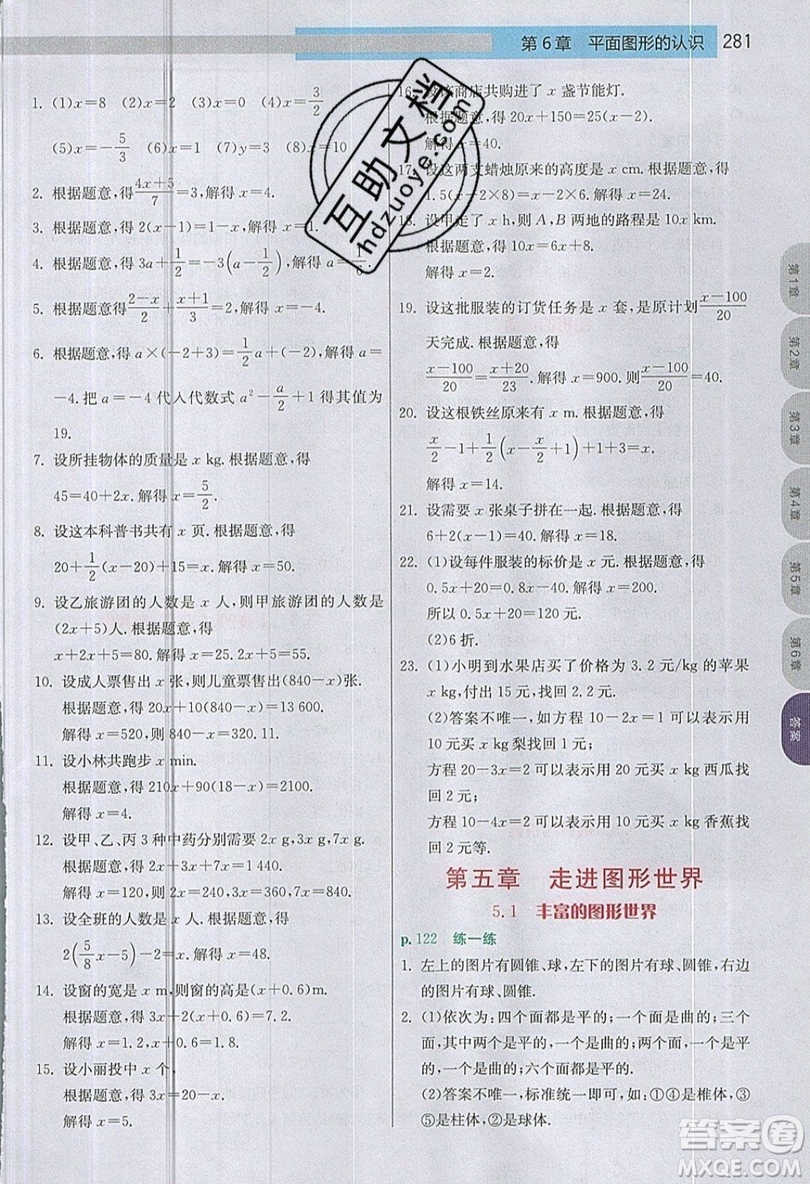 第6章 平面图形的认识 281
1. (1)x=8 (2)x=
(4)x=3/2
(5)x=-5/3 (6)x=0 (7)y=3 (8)x=10
2. 根据题意,得(4x+5)/7=3,解得x=4.
3. 根据题意,得2(x-1)=1-x,解得x=1.
4. 根据题意,得3a+1/2=-3(a-1/2),解得a=1/6.
5. 根据题意,得(2-x)/2+(x+1)/3=1,解得x=2.
6. 根据题意,得a×(-2+3)=1/2a+(-2),解得a=
-4.把a=-4代人代数式a²-a/2+1得其值为
19.
7. 设所挂物体的质量是x kg.根据题意,得
45=40+2x.解得x=5/2.
8. 设这本科普书共有x页.根据题意,得
20+1/2(x-20)+15=x.解得x=50.
9. 设乙旅游团的人数是x人,则甲旅游团的人数是
(2x+5)人.根据题意,得
x+2x+5=80.解得x=25.2x+5=55.
10. 设成人票售出x张,则儿童票售出(840-x)张.
根据题意,得20x+10(840-x)=13 600.
解得x=520,则840-x=320.
11. 设小林共跑步x min.
根据题意,得210x+90(18-x)=2100.
解得x=4.
12. 设甲、乙、丙3种中药分别需要2x g,3x g,7x g.
根据题意,得2x+3x+7x=1 440.
解得x=120.
13. 设全班的人数是x人,根据题意,得
2(5/8x-5)=x+2.解得x=48.
14. 设窗的宽是x m,则窗的高是(x+0.6)m.
根据题意,得2x+2(x+0.6)=6.
解得x=1.2,x+0.6=1.8.
15. 设小丽投中x个,
根据题意,得3x=20-x.
解得x=5.
16. 商店共购进了x盏节能灯.
根据题意,得20x+150=25(x-2).
解得x=40.
17. 设这两支蜡烛原来的高度是x cm.根据题意,得
1.5(x-2×8)=x-2×6.解得x=24.
18. 设甲走了x h,则A,B两地的路程是10x km.
根据题意,得10x-6x=8.
解得x=2.
19. 设这批服装的订货任务是x套,是原计划(x-100)/20
天完成.根据题意,得
(x-100)/20=(x+20)/23.解得x=900.则(x-100)/20=40.
20. 设这根铁丝原来有x m,根据题意,得
x/2-1-1/2(x/2+1)+1=x/4.
解得x=4.
21. 设需要x张桌子拼在一起.根据题意,得
6+2(x-1)=40.解得x=18.
22. (1)设每件服装的标价是x元.根据题意,得
0.5x+20=0.8x-40.解得x=200.
所以0.5x+20=120.
(2)6折.
23. (1)小明到水果店买了价格为3.2元/kg的苹果
x kg,付出15元,找回1元.
(2)答案不唯一,如方程10-2x=1可以表示用
10元买x kg梨找回1元;
方程20-3x=2可以表示用20元买x kg西瓜找
回2元;
方程10-4x=2可以表示用10元买x kg香蕉找
回2元等.
第五章 走进图形世界
5.1 丰富的图形世界
p.122 练一练
1. 左上的图片有圆锥、球,左下的图片有圆锥,右边
的图片有球、圆锥.
2. (1)依次为:四个面都是平的;一个面是曲的;三个
面,一个面是曲的;两个面是平的;两个面,一个面
是平的;一个面是曲的;六个面都是平的.
(2)答案不唯一,标准统一即可,如:①④是椎体,③
⑤是柱体,②是球体.
第1章
第2章
第3章
第4章
第5章
第6章
答案
互助文档
hdzuoye.com
答案圈
MXQE.COM